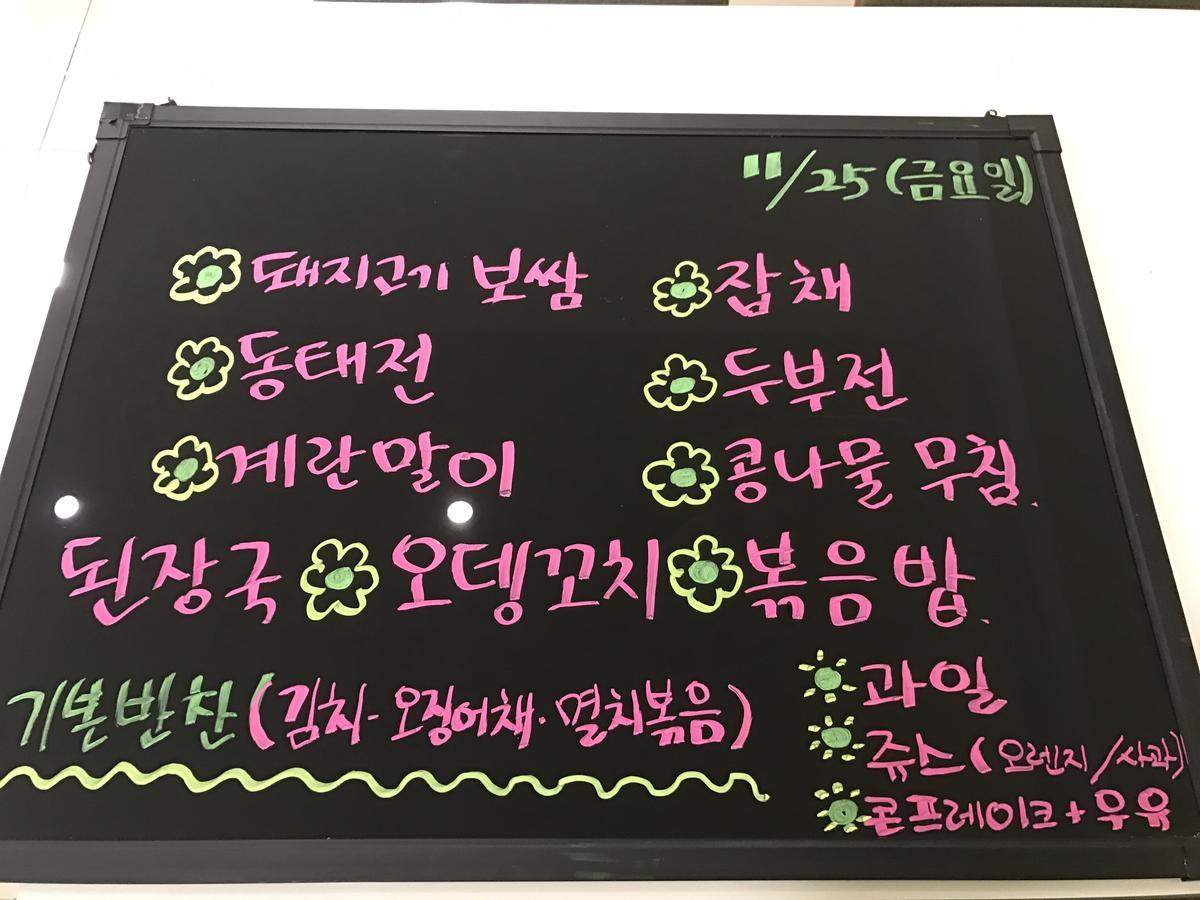 11/25 (금요일)
돼지고기 보쌈 잡채
동태전 두부전
계란말이 콩나물 무침.
된장국 오뎅꼬치 볶음밥.
기본반찬 (김치·오징어채·멸치볶음)
과일
쥬스 (오렌지/사과)
콘프레이크+우유